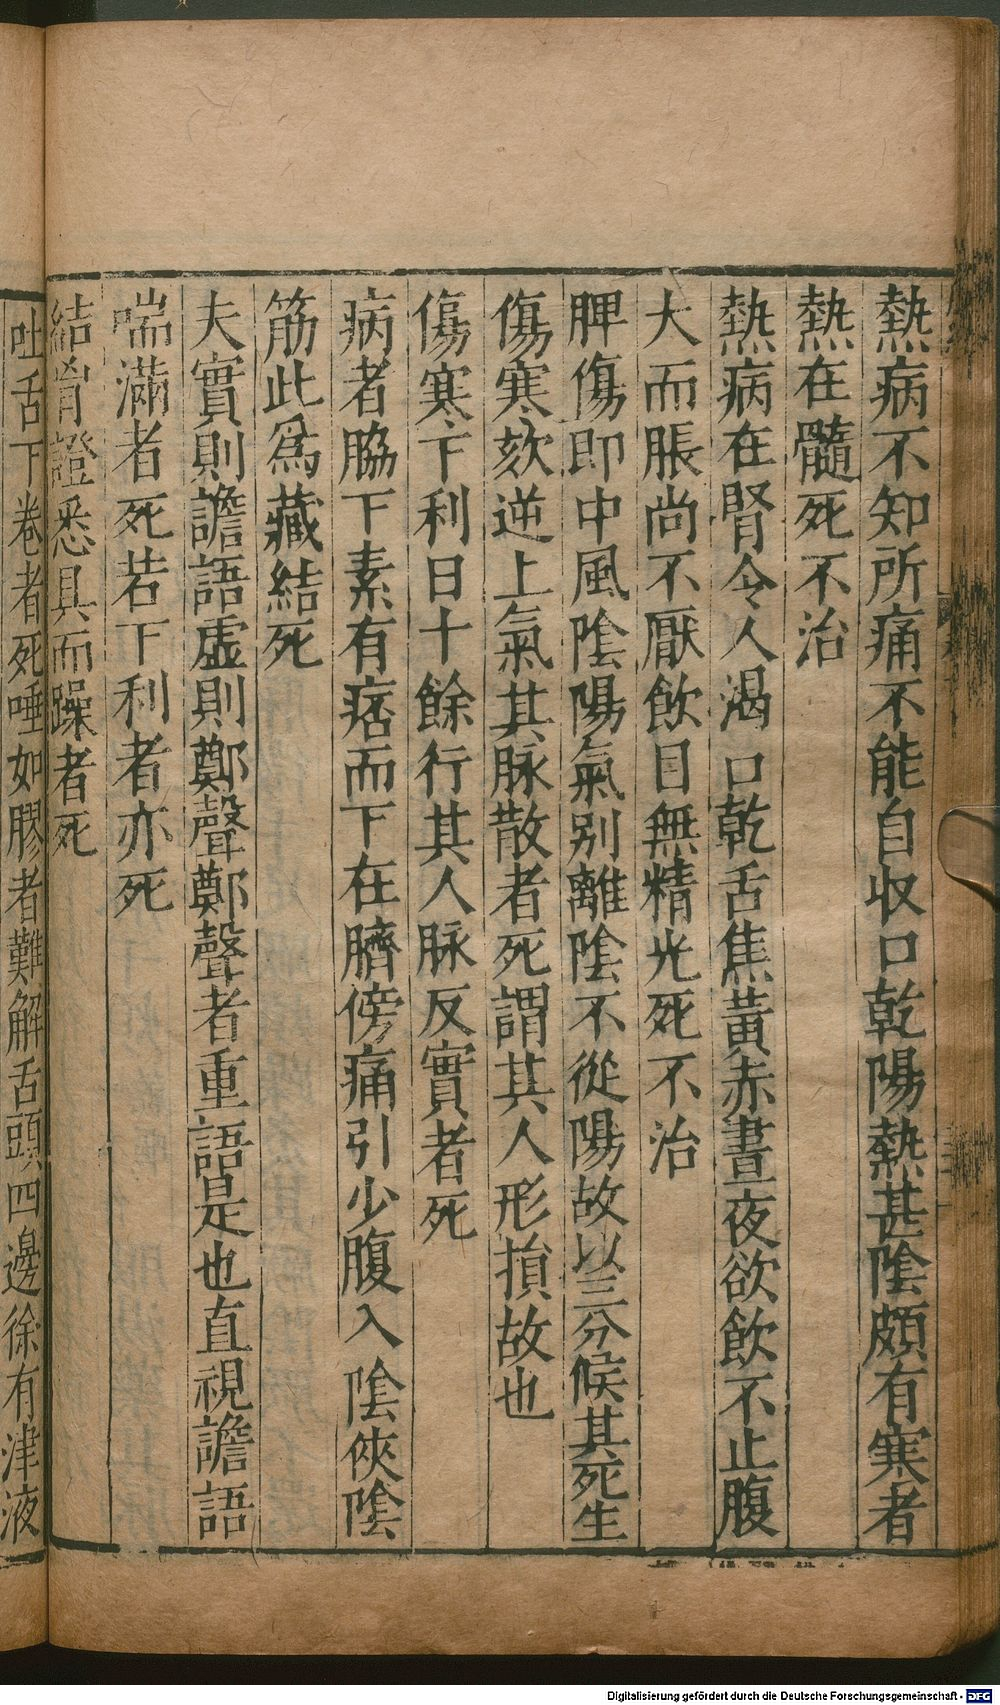 熱病不知所痛不能自収口乾陽熱甚陰頗有寒者
熱在髓死不治
熱病在腎令人渴口乾舌焦黃赤晝夜欲飲不止腹
大而脹尚不厭飲目無精光死不治
脾傷即中風陰陽氣別離陰不從陽故以三分候其死生
傷寒欬逆上氣其脉散者死謂其人形損故也
傷寒下利日十餘行其人脉反實者死
病者脇下素有痞而下在臍傍痛引少腹入陰俠陰
筋此爲藏結死
夫實則譫語虛則鄭聲鄭聲者重語是也直視譫語
喘滿者死若下利者亦死
結胷證悉具而躁者死
吐舌下卷者死唾如膠者難解舌頭四邊徐有津液
Digitalisierung gefördert durch die Deutsche Forschungsgemeinschaft - DFG